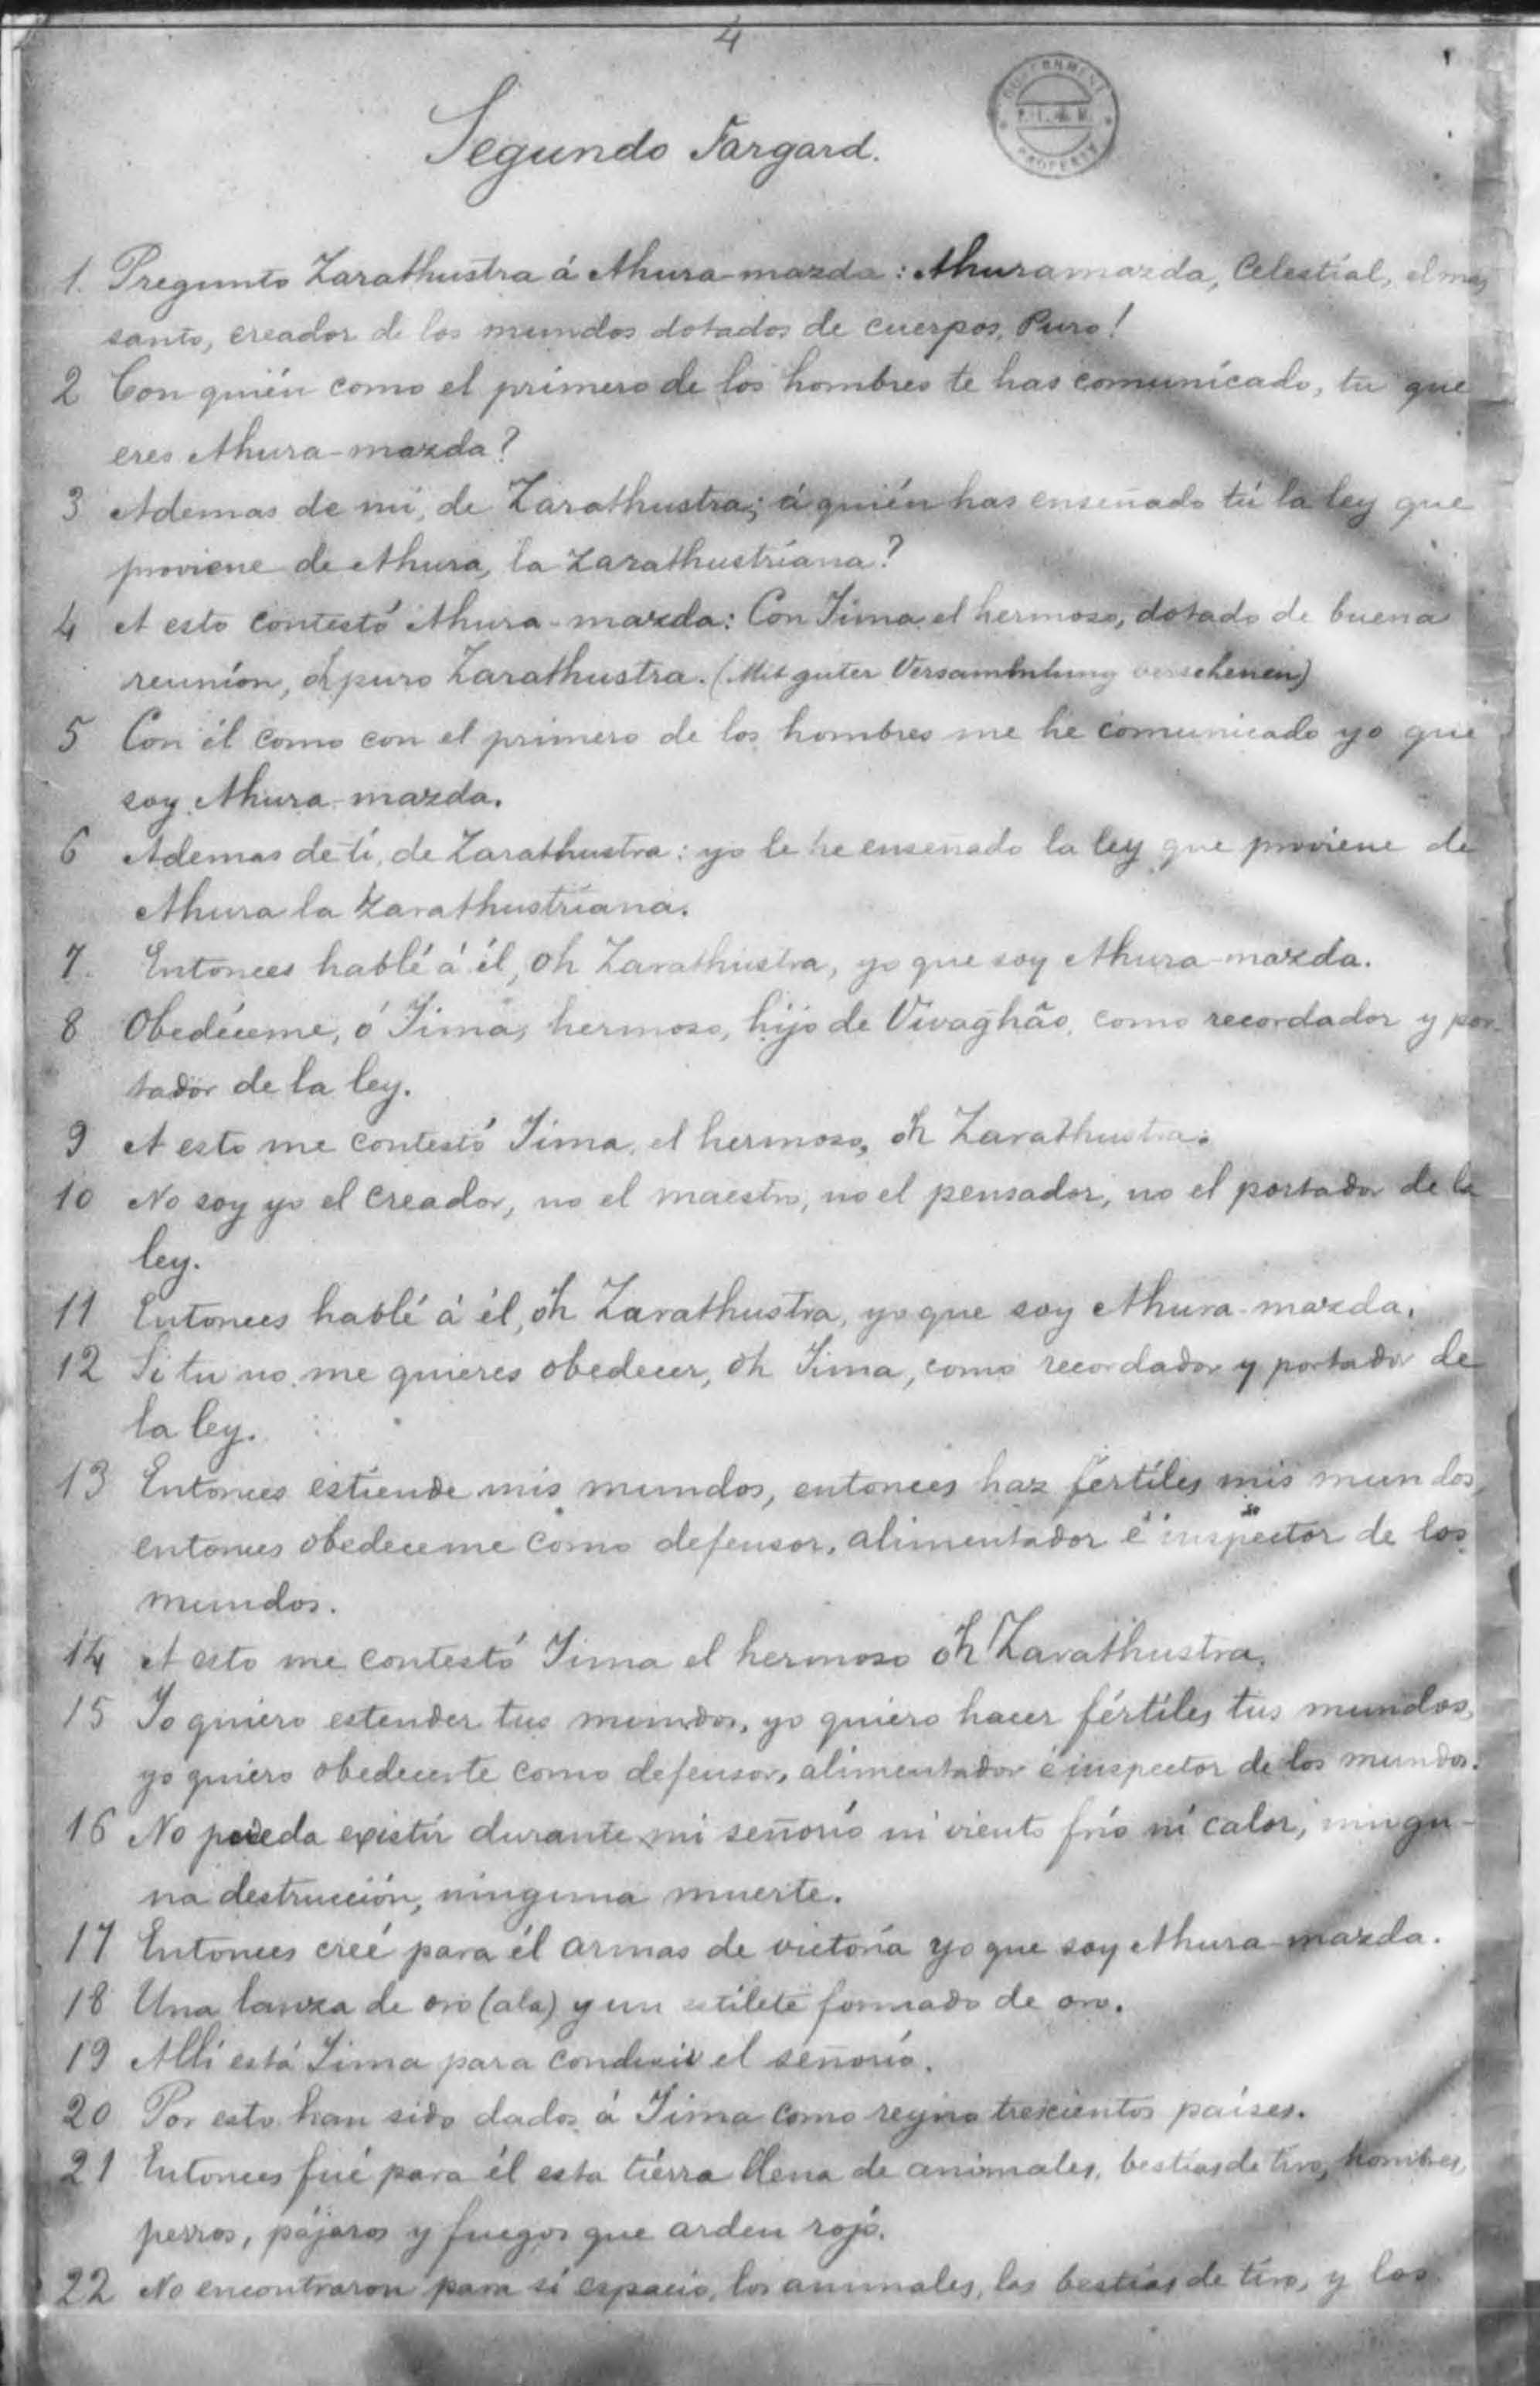 4
GOVERNMENT
PROPERTY
Segundo Fargard.
1. Pregunto Zarathustra á Ahura-mazda: Ahuramazda, Celestial, el mas
santo, creador de los mundos dotados de cuerpos, Puro!
2 Con quién como el primero de los hombres te has comunicado, tu que
eres Ahura-mazda?
3 Ademas de mi, de Zarathustra; á quién has enseñado tú la ley que
proviene de Ahura, la zarathustriana?
4 A esto contestó Ahura-mazda: Con Jima el hermoso, dotado de buena
reunion, oh puro Zarathustra. (Mit guter Versammlung versehenen)
5 Con él como con el primero de los hombres me he comunicado yo que
soy Ahura-mazda.
6 Ademas de ti, de Zarathustra: yo le he enseñado la ley que proviene de
Ahura la zarathustriana.
7. Entonces hablé á él, oh Zarathustra, yo que soy Ahura-mazda.
8 Obedéceme, ó Jima, hermoso, hijo de Vivaghão, como recordador y por-
tador de la ley.
9 A esto me contestó Jima, el hermoso, oh Zarathustra:
10 No soy yo el creador, no el maestro, no el pensador, no el portador de la
ley.
11 Entonces hablé á él, oh Zarathustra, yo que soy Ahura-mazda.
12 Si tu no me quieres obedecer, oh Jima, como recordador y portador de
la ley.
13 Entonces estiende mis mundos, entonces haz fértiles mis mundos,
entonces obedeceme como defensor, alimentador é inspector de los
mundos.
14 A esto me contestó Jima el hermoso oh Zarathustra.
15 Yo quiero estender tus mundos, yo quiero hacer fértiles tus mundos,
yo quiero obedecerte como defensor, alimentador é inspector de los mundos.
16 No pueda existir durante mi señorío ni viento frío ni calor, ningu-
na destrucción, ninguna muerte.
17 Entonces creé para él armas de victoria yo que soy Ahura-mazda.
18 Una lanza de oro (ala) y un estilete formado de oro.
19 Allí está Jima para conducir el señorío.
20 Por esto han sido dados á Jima como reyno trescientos países.
21 Entonces fué para él esta tiérra llena de animales, bestias de tiro, hombres,
perros, pájaros y fuegos que arden rojo.
22 No encontraron para sí espacio, los animales, las bestias de tiro, y los